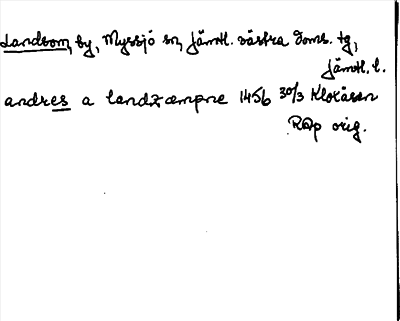 Landsom, by, Myssjö sn, Jämtl. västra doms. tg,
Jämtl. l.
andres a landzæmpne 1456 30/3 Klokåsen
RAp orig.